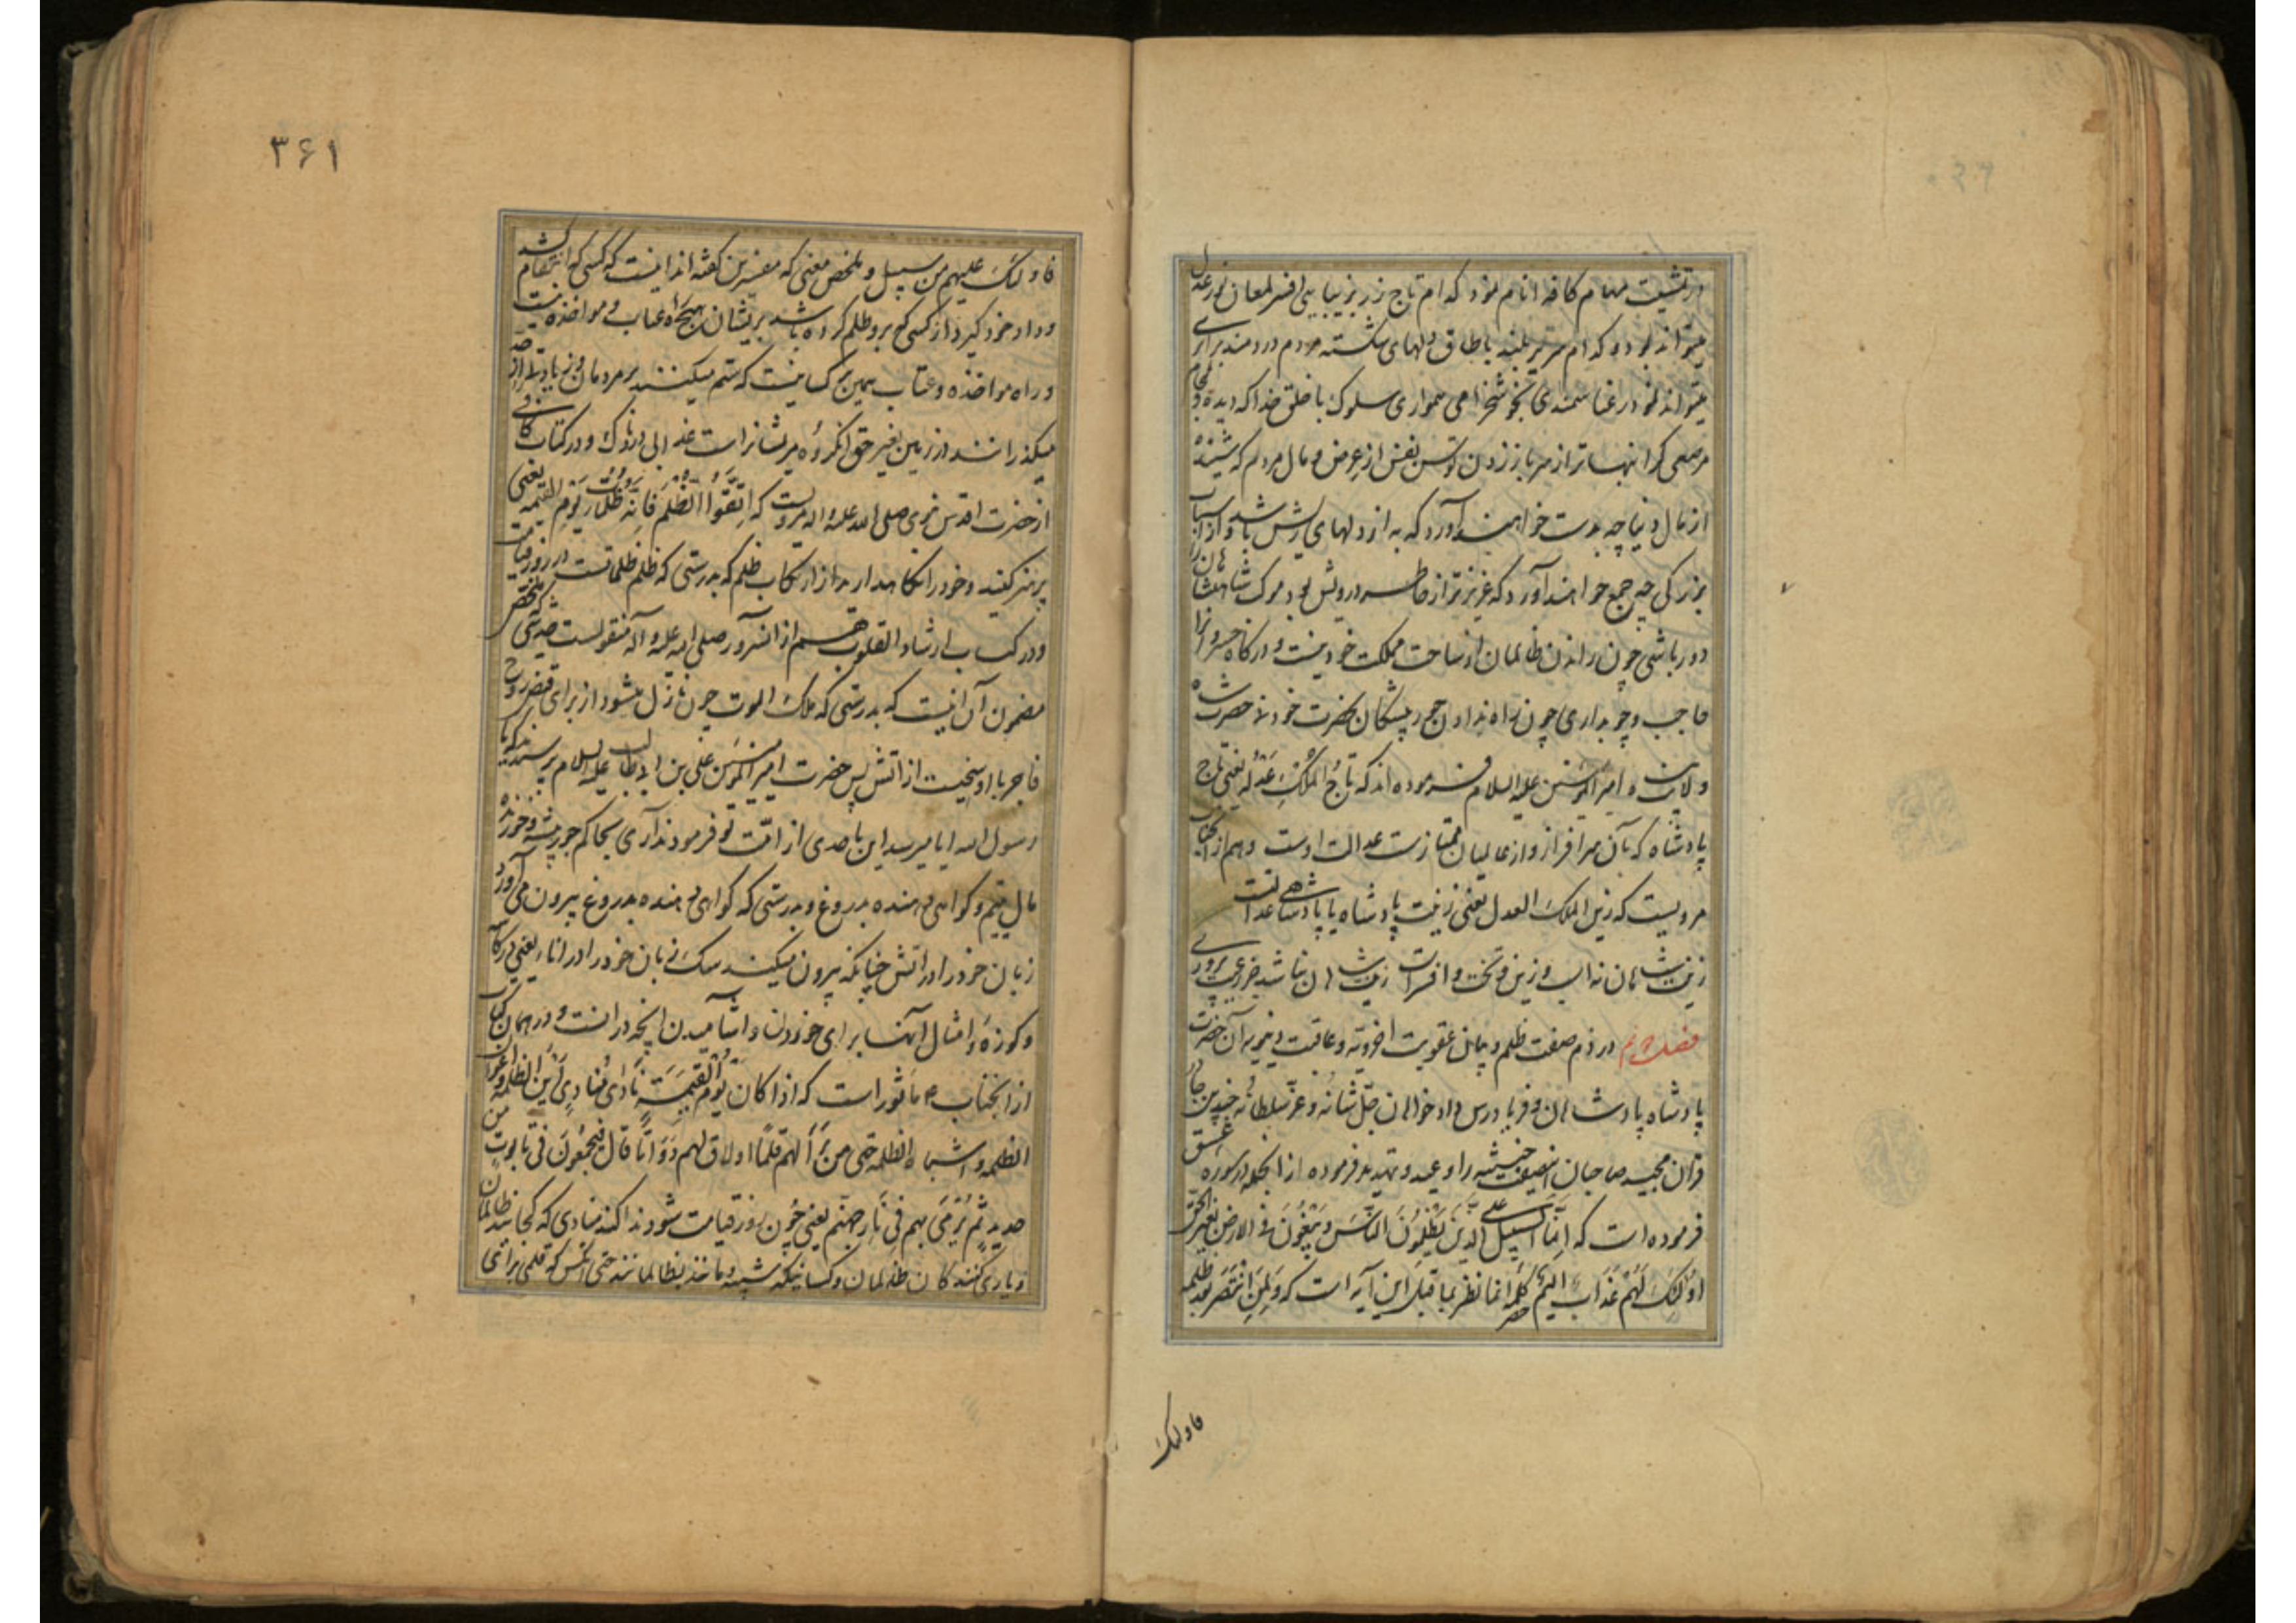 در تمشیت مهام کافه انام نمود کدام تاج زر بزیبایی افسر لمعان نور عدل
میتواند بود و کدام سریر بلند با طاق دلهای شکسته مردم دردمند برابری
میتواند نمود در غنا سمندی بخوشخرامی همواری سلوک با خلق خدا که دیده و لجام
مرصعی گرانبهاتر از سر باز زدن توسن نفس از عرض و مال مردم که شنیده
از مال دنیا چه بدست خواهند آورد که به از دلهای ریش باشد و از اسباب
بزرگی چه جمع خواهند آورد که عزیزتر از خاطر درویش بود مرک شاهنشاهان را
دور باشی چون راندن ظالمان از ساحت مملکت خود نیست و درگاه خسروانرا
حاجب و چوبداری چون راه ندادن جور پیشگان بحضرت خود نه حضرت شاه
ولایت پناه امیر المؤمنین علیه السلام فرموده اند که تاج الملک عدله یعنی تاج
پادشاه که بآن سرافراز و از عالمیان ممتازست عدالت اوست و هم از آنجناب
مرویست که زین الملک العدل یعنی زینت پادشاه یا پادشاهی عدالتست
زینت شاهان نه اسب و زین و تخت و افسرست زینت شاهان نباشد جز رعیت پروری
فصل در ذم صفت ظلم و بیان عقوبت اخرویه و عاقبت دنیویه آن حضرت
پادشاه پادشاهان و فریادرس دادخواهان جل شانه و عز سلطانه در چندین جا از
قرآن مجید صاحبان این صفت خبیثه را وعید و تهدید فرموده از انجمله در سوره عسق
فرموده است که اِنَّمَا السبیل علی الَّذینَ یَظْلِمُونَ النَّاسَ وَیَبْغُونَ فی الارض بغیر الحَق
اُولئِکَ لَهُمْ عَذَاب اَلیم کلمه انما نظر بما قبل این آیه است که وَلَمَنِ انْتَصَرَ بعد ظلمه
فاولئک
۳۶۱
فاولئک علیهم من سبیل و ملخص معنی که مفسرین گفته اند اینست که کسی که انتقام کشد
و داد خود گیرد از کسی که برو ظلم کرده باشد بر ایشان هیچ راه عتاب و مواخذه نیست
و راه مواخذه و عتاب همین بر کسانیست که ستم میکنند بر مردمان و زیادتی از حد
میگذرانند در زمین بغیر حق آنگروه مر ایشانراست عذابی دردناک و در کتاب کافی
از حضرت اقدس نبوی صلی الله علیه و آله مرویست که اِتَّقُوا الظُّلْمَ فَاِنَّهُ ظُلُمَات یَوْمِ القیمة یعنی
پرهیز کنید و خود را نگاهدارید از ارتکاب ظلم که بدرستی که ظلم ظلماتست در روز قیامت
و در کتاب ارشاد القلوب هم از آنسرور صلی الله علیه و آله منقولست حدیثی که ملخص
مضمون آن اینست که بدرستی که ملک الموت چون نازل میشود از برای قبض روح
فاجر با او سیخیست از آتش پس حضرت امیر المؤمنین علی بن ابیطالب علیه السلام پرسیدند که یا
رسول الله ایا میرسد این باحدی از امّت تو فرمودند آری بحاکم جور پیشه و خورنده
مال یتیم و گواهی دهنده بدروغ و بدرستی که گواهی دهنده بدروغ بیرون می آورد
زبان خود را در آتش چنانکه بیرون میکند سگ زبان خود را در اناء یعنی در کاسه
و کوزه و امثال آنها برای خوردن و آشامیدن آنچه در آنست و در همان کتاب
از آنجناب ماثور است که اذا کان یَوْمُ القِیمَةِ نَادَی مُنَادِیٌ اَیْنَ الظلمه و اعوان
الظلمه و اشباه الظلمه حتی من بَرَأ لَهم قَلَمًا او لاقَ لهم دَوَاتًا قال فَیجْمَعُونَ فی تابوت من
حدید ثم یُرْمَی بهم فی نَارِ جهنّم یعنی چون روز قیامت شود ندا کند منادی که کجایند ظالمان
و یاری کنندکان ظالمان و کسانیکه شبیه و مانند بظالمانند حتی آنکس که قلمی برای